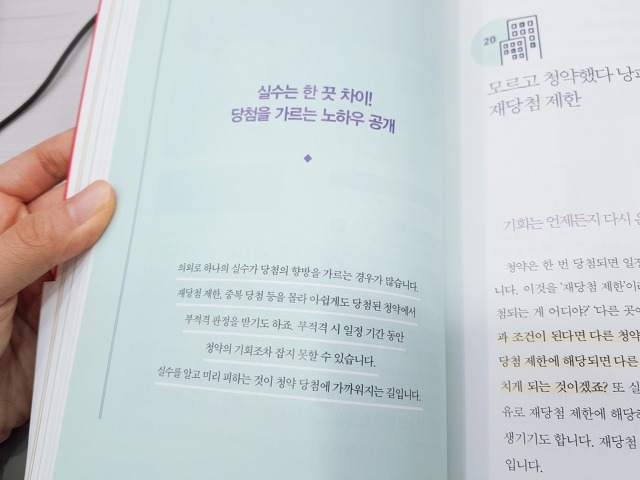 실수는 한 끗 차이!
당첨을 가르는 노하우 공개
의외로 하나의 실수가 당첨의 향방을 가르는 경우가 많습니다.
재당첨 제한, 중복 당첨 등을 몰라 아쉽게도 당첨된 청약에서
부적격 판정을 받기도 하죠. 부적격 시 일정 기간 동안
청약의 기회조차 잡지 못할 수 있습니다.
실수를 알고 미리 피하는 것이 청약 당첨에 가까워지는 길입니다.
20
모르고 청약했다 낭패
재당첨 제한
기회는 언제든지 다시
청약은 한 번 당첨되면 일정
니다. 이것을 '재당첨 제한'이
첨되는 게 어디야?' '다른 곳
과 조건이 된다면 다른 청약
당첨 제한에 해당되면 다른
치게 되는 것이겠죠? 또 실
유로 재당첨 제한에 해당하
생기기도 합니다. 재당첨
입니다.